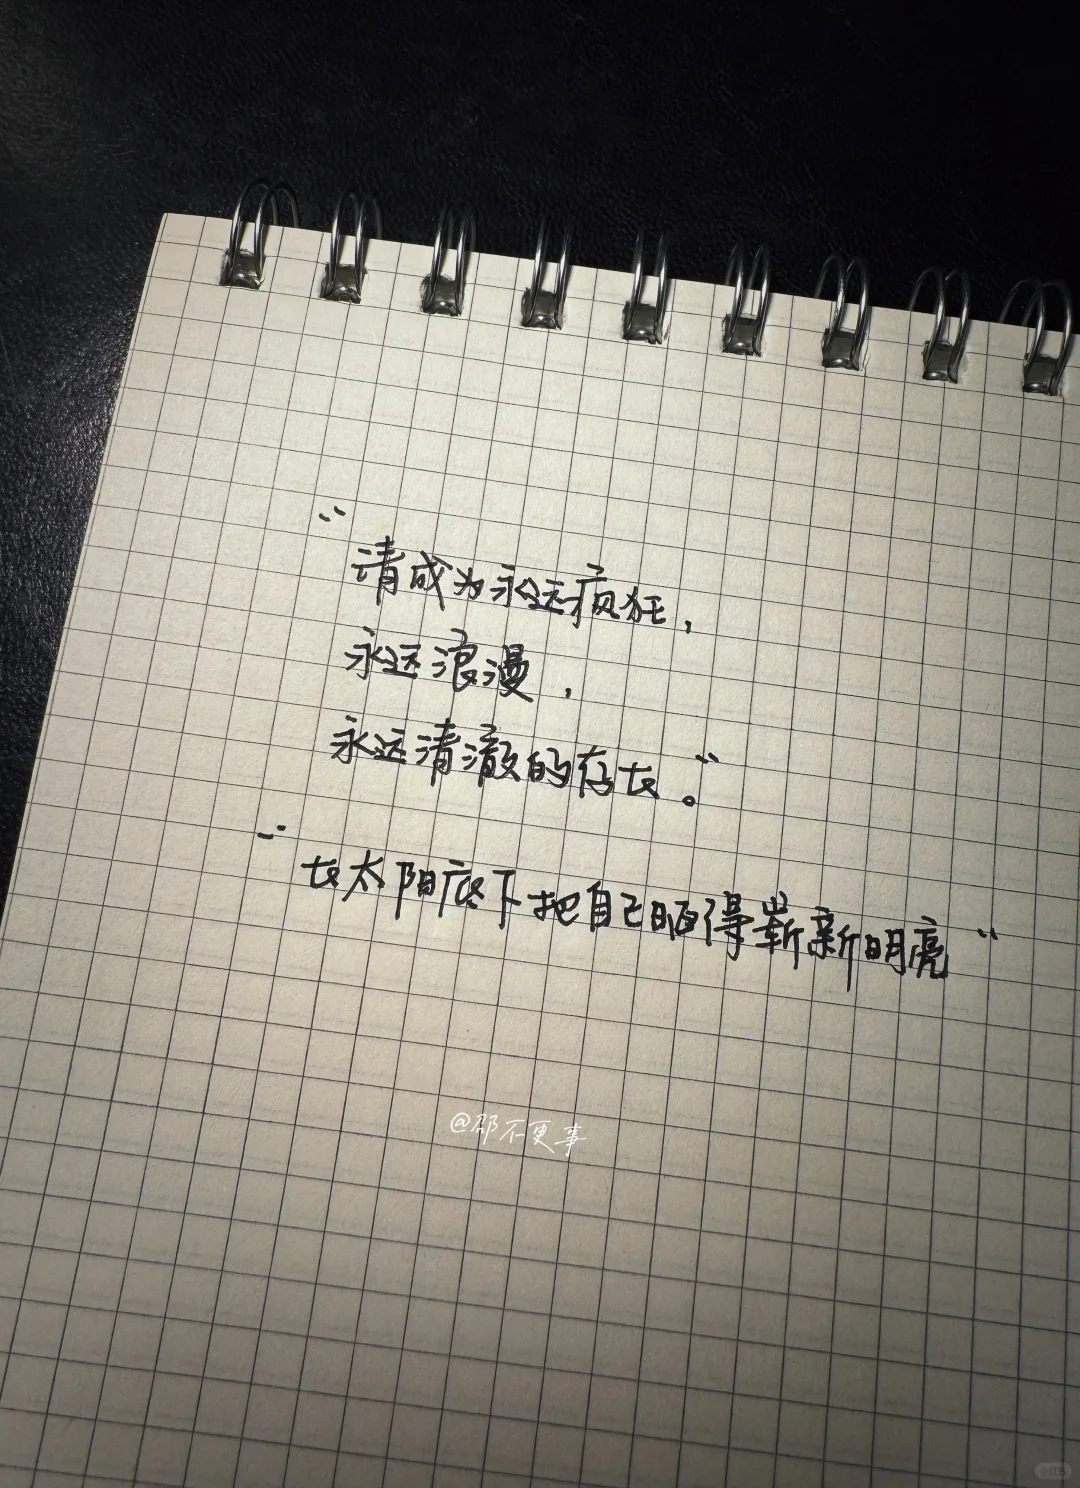 “请成为永远疯狂，
永远浪漫，
永远清澈的存在。”
“在太阳底下把自己晒得崭新明亮”
@邵不更事
小红书